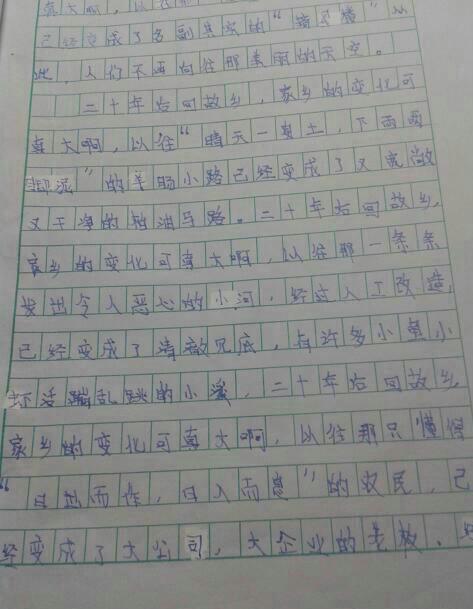 真大啊，以往
已经变成了名副其实的“ ”从
此，人们不再向往那美丽的天空。
二十年后回故乡，家乡的变化可
真大啊，以往“晴天一身土，下雨两
脚泥”的羊肠小路已经变成了又宽敞
又干净的柏油马路。二十年后回故乡，
家乡的变化可真大啊，以往那一条条
发出令人恶心的小河，经过人工改造，
已经变成了清澈见底，有许多小鱼小
虾活蹦乱跳的小溪，二十年后回故乡，
家乡的变化可真大啊，以往那只懂得
“日出而作，日入而息”的农民，已
经变成了大公司，大企业的老板。